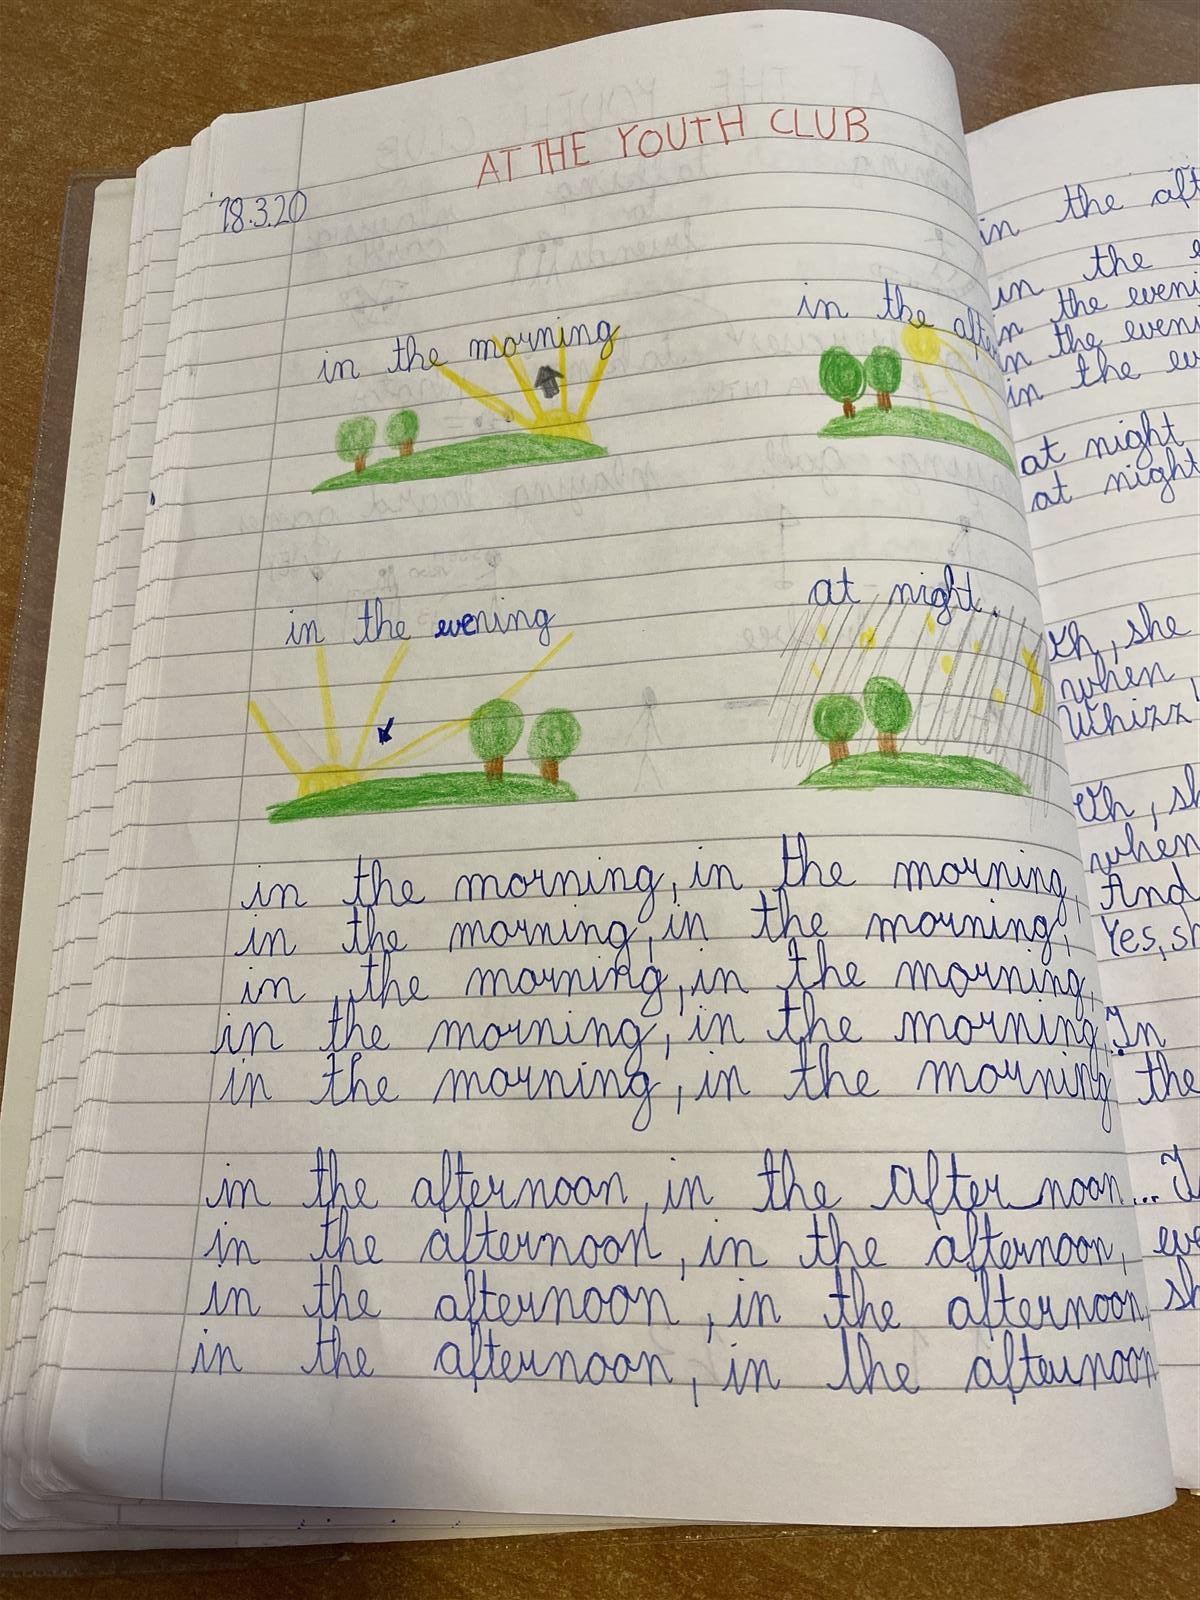 AT THE YOUTH CLUB
18.3.20
in the morning
in the
in the evening
at night.
in the morning, in the morning,
in the morning, in the morning,
in the morning, in the morning,
in the morning, in the morning,
in the morning, in the morning
in the afternoon, in the afternoon...
in the afternoon, in the afternoon,
in the afternoon, in the afternoon
in the afternoon, in the afternoon
in the
in the
in the
in the
in the
at night
at night
Oh, she
when
Whizz
Oh,
when
And
Yes,
In
the